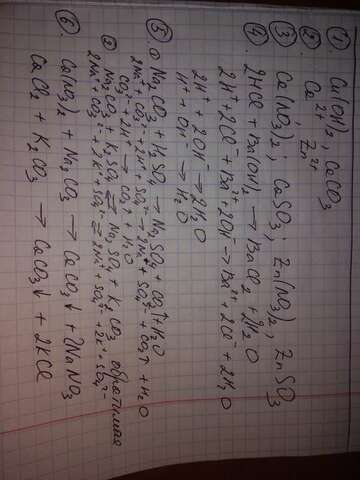 ① Cu(OH)₂, CaCO₃
② Ca²⁺ Zn²⁺
③ Ca(NO₃)₂; CaSO₃; Zn(NO₃)₂, ZnSO₃
④. 2HCl + Ba(OH)₂ → BaCl₂ + 2H₂O
2H⁺ + 2Cl⁻ + Ba²⁺ + 2OH⁻ → Ba²⁺ + 2Cl⁻ + 2H₂O
2H⁺ + 2OH⁻ → 2H₂O
H⁺ + OH⁻ → H₂O
⑤ ① Na₂CO₃ + H₂SO₄ → Na₂SO₄ + CO₂↑ + H₂O
2Na⁺ + CO₃²⁻ + 2H⁺ + SO₄²⁻ → 2Na⁺ + SO₄²⁻ + CO₂↑ + H₂O
CO₃²⁻ + 2H⁺ → CO₂↑ + H₂O
② Na₂CO₃ + K₂SO₄ ⇄ Na₂SO₄ + K₂CO₃ обратимая
2Na⁺ + CO₃²⁻ + 2K⁺ + SO₄²⁻ ⇄ 2Na⁺ + SO₄²⁻ + 2K⁺
⑥. Ca(NO₃)₂ + Na₂CO₃ → CaCO₃↓ + 2NaNO₃
CaCl₂ + K₂CO₃ → CaCO₃↓ + 2KCl